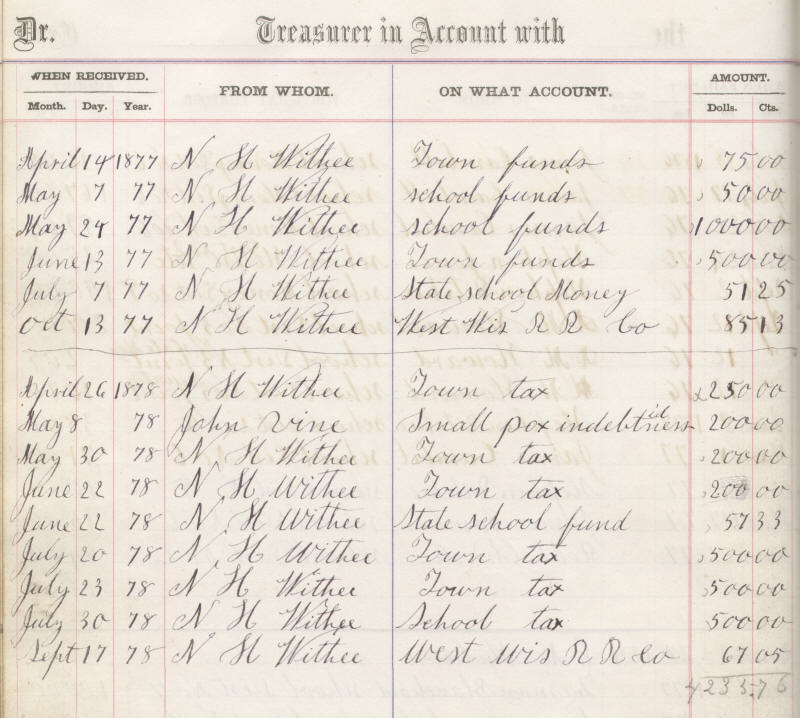 Dr. Treasurer in Account with
WHEN RECEIVED. FROM WHOM. ON WHAT ACCOUNT. AMOUNT.
Month. Day. Year. Dolls. Cts.
April 14 1877 N H Withee Town funds 75 00
May 7 77 N H Withee school funds 50 00
May 24 77 N H Withee school funds 1000 00
June 13 77 N H Withee Town funds 500 00
July 7 77 N H Withee State school Money 51 25
Oct 13 77 N H Withee West Wis R R Co 85 13
April 26 1878 N H Withee Town tax 250 00
May 8 78 John Vine Small pox indebtidness 200 00
May 30 78 N H Withee Town tax 200 00
June 22 78 N H Withee Town tax 200 00
June 22 78 N H Withee State school fund 57 33
July 20 78 N H Withee Town tax 500 00
July 23 78 N H Withee Town tax 500 00
July 30 78 N H Withee School tax 500 00
Sept 17 78 N H Withee West Wis R R Co 67 05
4235.76